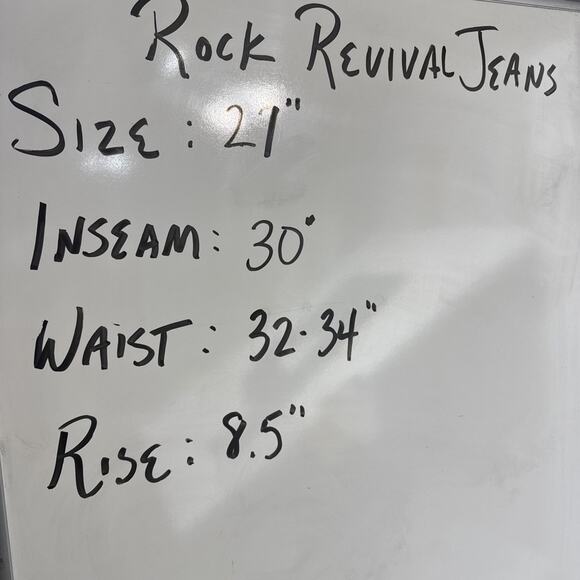 Rock Revival Jeans
Size: 27"
Inseam: 30"
Waist: 32-34"
Rise: 8.5"